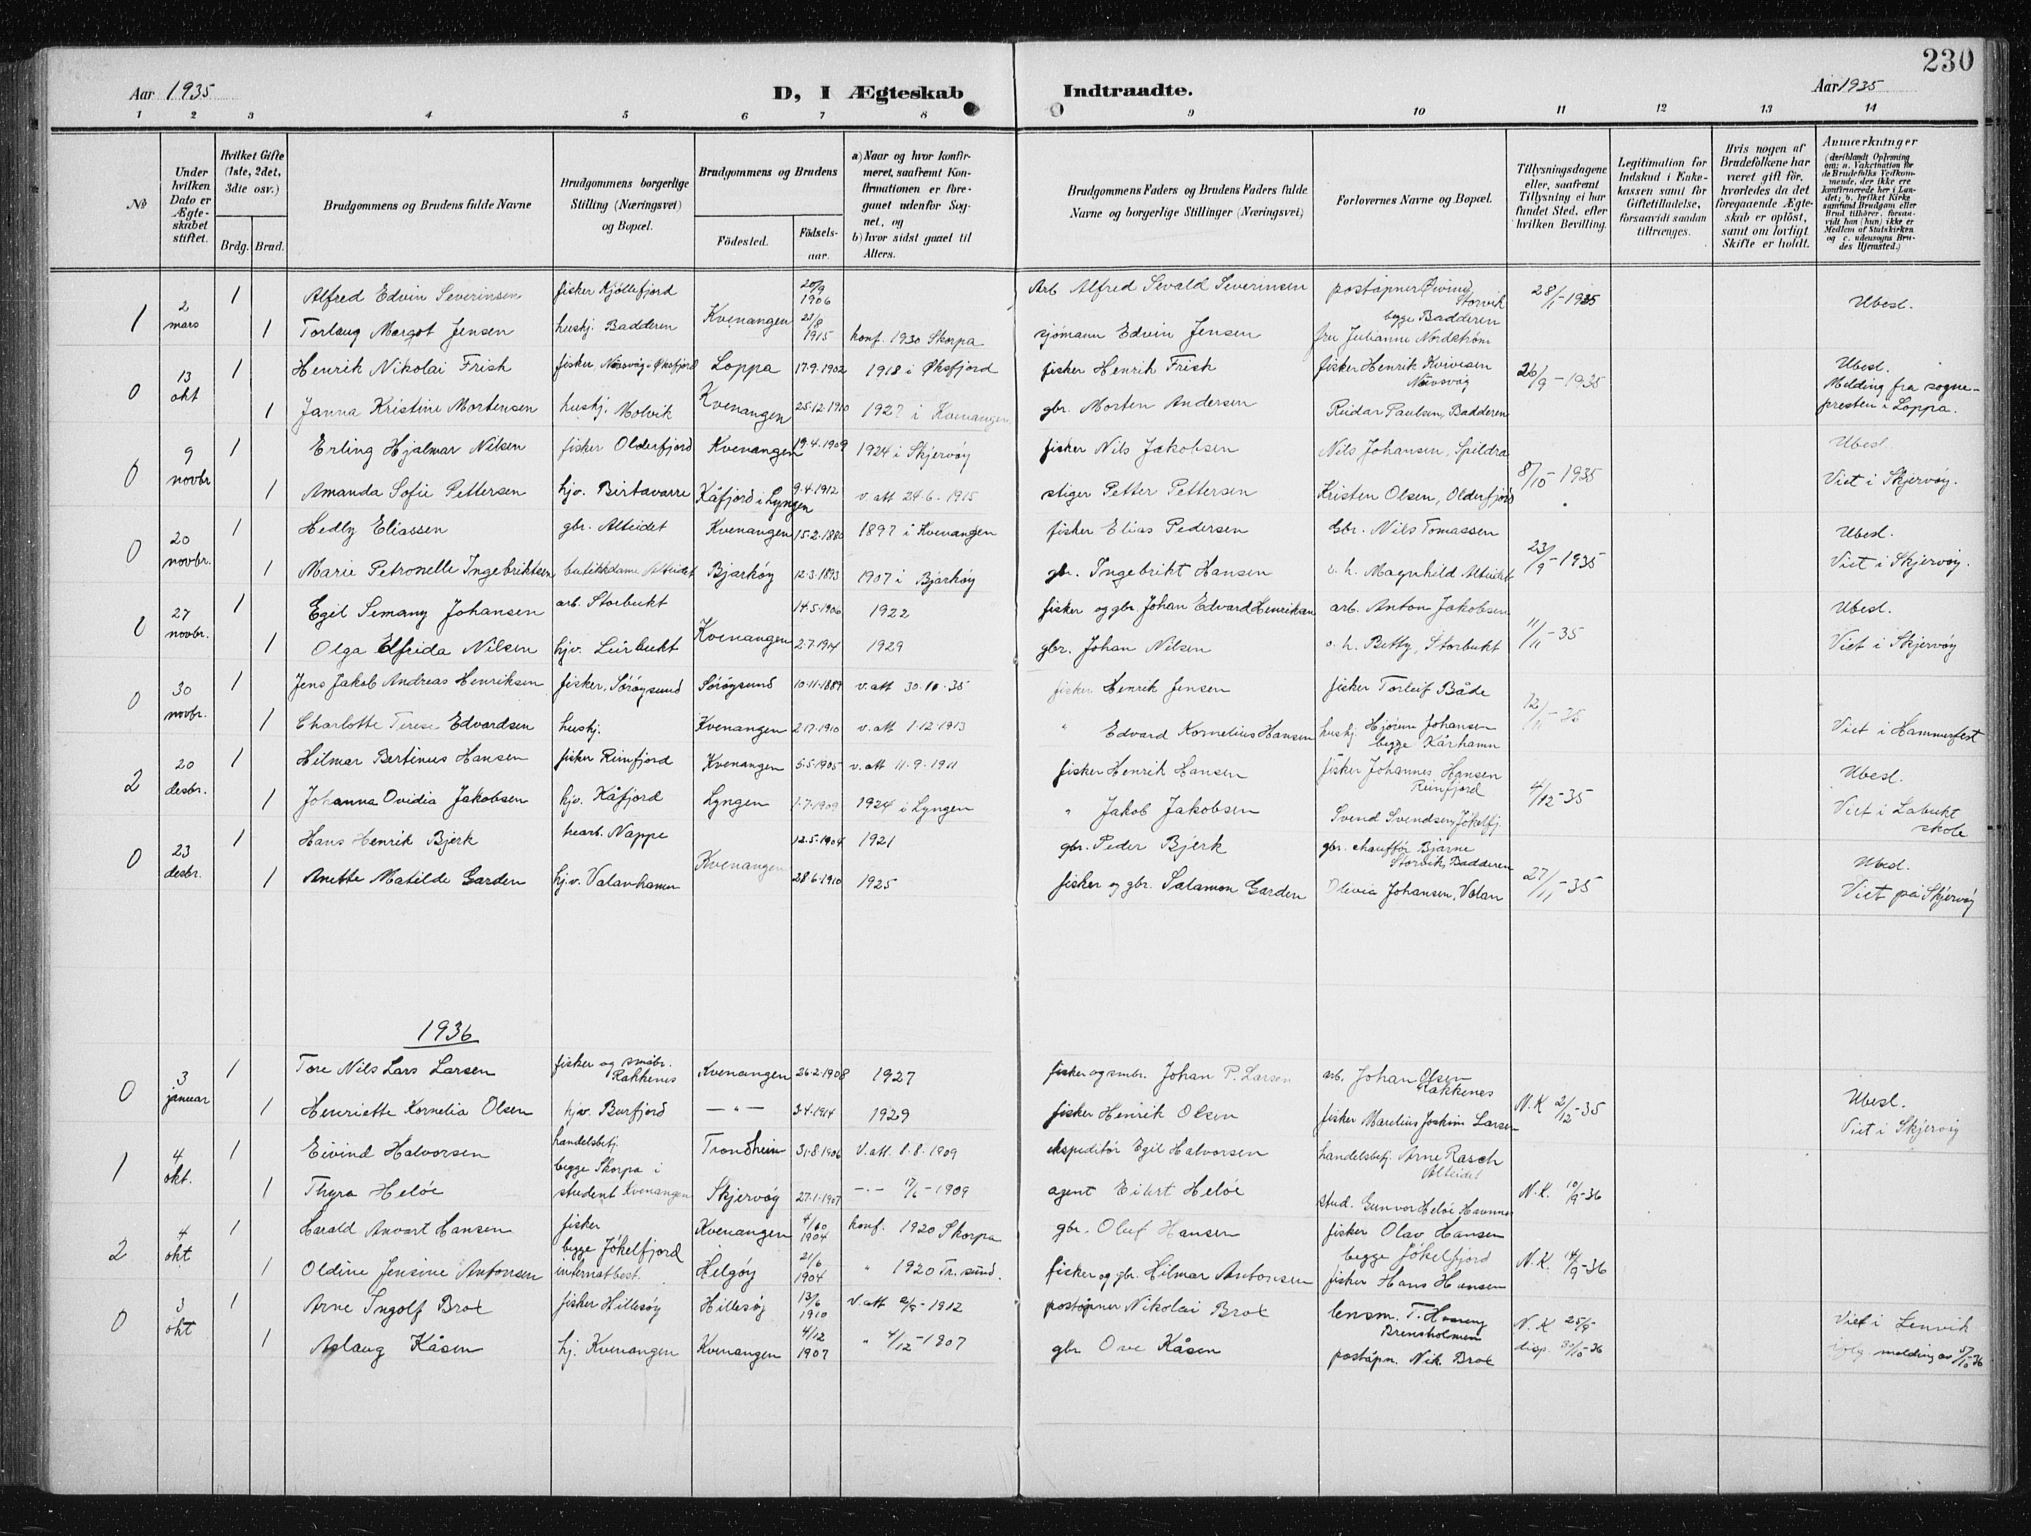 230
Aar 1935
D, I Ægteskab Indtraadte.
Aar 1935
1 2 3 4 5 6 7 8 9 10 11 12 13 14
No
Under hvilken Dato er Ægteskabet stiftet.
Hvilket Gifte (1ste, 2det, 3die osv.)
Brdg. Brud.
Brudgommens og Brudens fulde Navne
Brudgommens borgerlige Stilling (Næringsvei) og Bopæl.
Brudgommens og Brudens
Födested. Födselsaar.
a) Naar og hvor konfirmeret, saafremt Konfirmationen er foregaaet udenfor Sognet, og
b) hvor sidst gaaet til Alters.
Brudgommens Faders og Brudens Faders fulde Navne og borgerlige Stillinger (Næringsvei)
Forlovernes Navne og Bopæl.
Tillysningsdagene eller, saafremt Tillysning ei har fundet Sted, efter hvilken Bevilling.
Legitimation for Indskud i Enkekassen samt for Giftetilladelse, forsaavidt saadan tiltrænges.
Hvis nogen af Brudefolkene har været gift før, hvorledes da det foregaaende Ægteskab er oplöst, samt om lovligt Skifte er holdt.
Anmerkninger
(deriblandt Oplysning om: a. Vakcination for de Brudefolks Vedkommende, der ikke ere konfirmerede her i Landet; b. hvilket Kirkesamfund Brudgom eller Brud tilhörer, forsaavidt han (hun) ikke er Medlem af Statskirken og c. udensogns Brudes Hjemsted.)
1 2 mars 1 Alfred Edvin Severinsen fisker Kjøllefjord Kvenangen 20/9 1906 Arb Alfred Sevald Severinsen poståpner Øivind Storvik begge Badderen 28/1-1935 Ubesl.
1 Torlaug Margot Jensen huskj. Badderen 23/8 1915 konf. 1930 Skorpa sjømann Edvin Jensen fru Julianne Nordstrøm
0 13 okt 1 Henrik Nikolai Frisk fisker, Nuvsvåg i Øksfjord Loppa 17.9.1902 1918 i Øksfjord fisker Henrik Frisk fisker Henrik Kvivesen Nuvsvåg 26/9-1935 Ubesl. Melding fra sognepresten i Loppa.
1 Janna Kristine Mortensen huskj. Molvik Kvenangen 25.12.1910 1927 i Kvenangen gbr. Morten Andersen Reidar Paulsen, Badderen
0 9 novbr 1 Erling Hjalmar Nilsen fisker Olderfjord Kvenangen 19.4.1909 1924 i Skjervøy fisker Nils Jakobsen Nils Johansen, Spildra 8/10-1935 Ubesl.
1 Amanda Sofie Pettersen hjv. Birtavarre Kåfjord i Lyngen 9.4.1912 v.att 24.6.1915 stiger Petter Pettersen Kristen Olsen, Olderfjord Viet i Skjervøy.
0 20 novbr. 1 Hedly Eliassen gbr. Alteidet Kvenangen 15.2.1880 1897 i Kvenangen fisker Elias Pedersen Gbr. Nils Tomassen 23/9-1935 Ubesl.
1 Marie Petronelle Ingebriktsen butikkdame Alteidet Bjarkøy 12.3.1893 1907 i Bjarkøy gbr. Ingebrikt Hansen o.h. Magnhild Alteidet Viet i Skjervøy.
0 27 novbr. 1 Egil Semany Johansen arb. Storbukt Kvenangen 14.5.1906 1922 fisker og gbr. Johan Edvard Henriksen arb. Anton Jakobsen 11/11-35 Ubesl.
1 Olga Elfrida Nilsen hjv. Leirbukt 2.7.1914 1929 gbr. Johan Nilsen o.h. Betty, Storbukt Viet i Skjervøy
0 30 novbr. 1 Jens Jakob Andreas Henriksen fisker, Sørøysund Sørøysund 10.11.1889 v.att 30.10.35 fisker Henrik Jensen fisker Torleif Både 12/11-35
1 Charlotte Terese Edvardsen huskj. Kvenangen 2.17.1910 v.att 1.12.1913 " Edvard Kornelius Hansen huskj. Hjørun Johansen begge Kårhamn Viet i Hammerfest
2 20 desbr. 1 Hilmar Bertinus Hansen fisker Reinfjord Kvenangen 5.5.1905 v.att 11.9.1911 fisker Henrik Hansen fisker Johannes Hansen Reinfjord 4/12-35 Ubesl.
1 Johanna Ovidia Jakobsen hjv. Kåfjord Lyngen 1.7.1909 1924 i Lyngen " Jakob Jakobsen Svend Svendsen Jøkelfj. Viet i Labukt skole
0 23 desbr. 1 Hans Henrik Bjerk Nappe Kvenangen 12.5.1904 1921 gbr. Peder Bjerk gbr. chauffør Bjarne Storvik, Badderen 27/11-35 Ubesl.
1 Anette Matilde Garden hj.v. Valanhamn 28.6.1910 1925 fisker og gbr. Salamon Garden Olevia Johansen, Valan Viet på Skjervøy
1936
0 3 januar 1 Tore Nils Lars Larsen fisker og småbr. Rakkenes Kvenangen 26.2.1908 1927 fisker og smbr. Johan P. Larsen arb. Johan Olsen Rakkenes N.K 2/12-35 Ubesl.
1 Henriette Kornelia Olsen hjv. Burfjord —"— 3.4.1914 1929 fisker Henrik Olsen fisker Marelius Joakim Larsen Viet i Skjervøy
1 4 okt. 1 Eivind Halvorsen handelsbetj. begge Skorpa i Kvenangen Trondheim 31.8.1906 v.att 1.8.1909 ekspeditør Egil Halvorsen handelsbetj. Arne Rasch Alteidet N.K. 10/9-36
1 Thyra Heløe student Skjervøy 27.1.1907 -"- 17/6-1909 agent Eilert Heløe stud. Gunvor Heløe Havnnes
2 4 okt 1 Harald Anvart Hansen fisker begge Jøkelfjord Kvenangen 4/10 1904 konf. 1920 Skorpa gbr. Oluf Hansen fisker Olav Hansen begge Jøkelfjord N.K. 14/9-36
1 Oldine Jensine Antonsen internatbest. Helgøy 21/6 1904 " 1920 Tr.sund. fisker og gbr. Hilmar Antonsen fisker Hans Hansen
0 3 okt 1 Arne Ingolf Brox fisker Hillesøy Hillesøy 13/6 1910 v.att 2/5-1912 poståpner Nikolai Brox lensm. T. Brensholmen N.K 25/9 Viet i Lenvik
1 Aslaug Kåsen hj. Kvenangen Kvenangen 4/12 1907 " 4/12-1907 gbr Ove Kåsen poståpn. Nik. Brox disp. 30/10-36 ifølg melding av 5/10-36